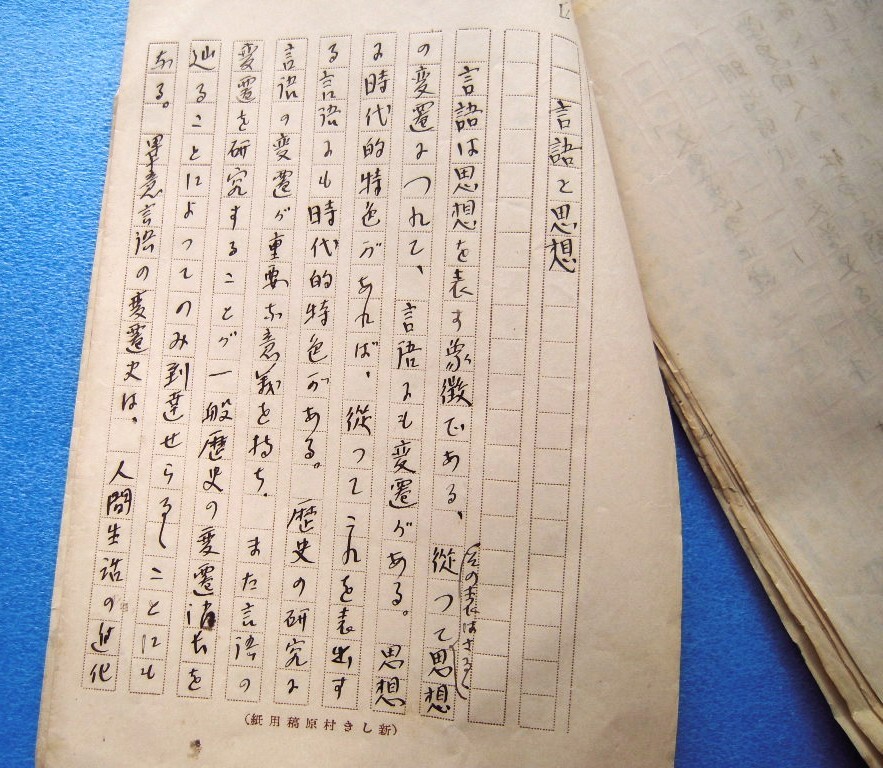 言語と思想
その表はさるゝ
言語は思想を表す象徴である、從つて思想
の変遷につれて、言語にも変遷がある。思想
に時代的特色があれば、從つてこれを表出す
る言語にも時代的特色がある。歴史の研究に
言語の変遷が重要な意義を持ち、また言語の
変遷を研究することが一般歴史の変遷消長を
辿ることによつてのみ到達せらるゝことにも
なる。畢意言語の変遷史は、人間生活の進化
(新しき村原稿用紙)